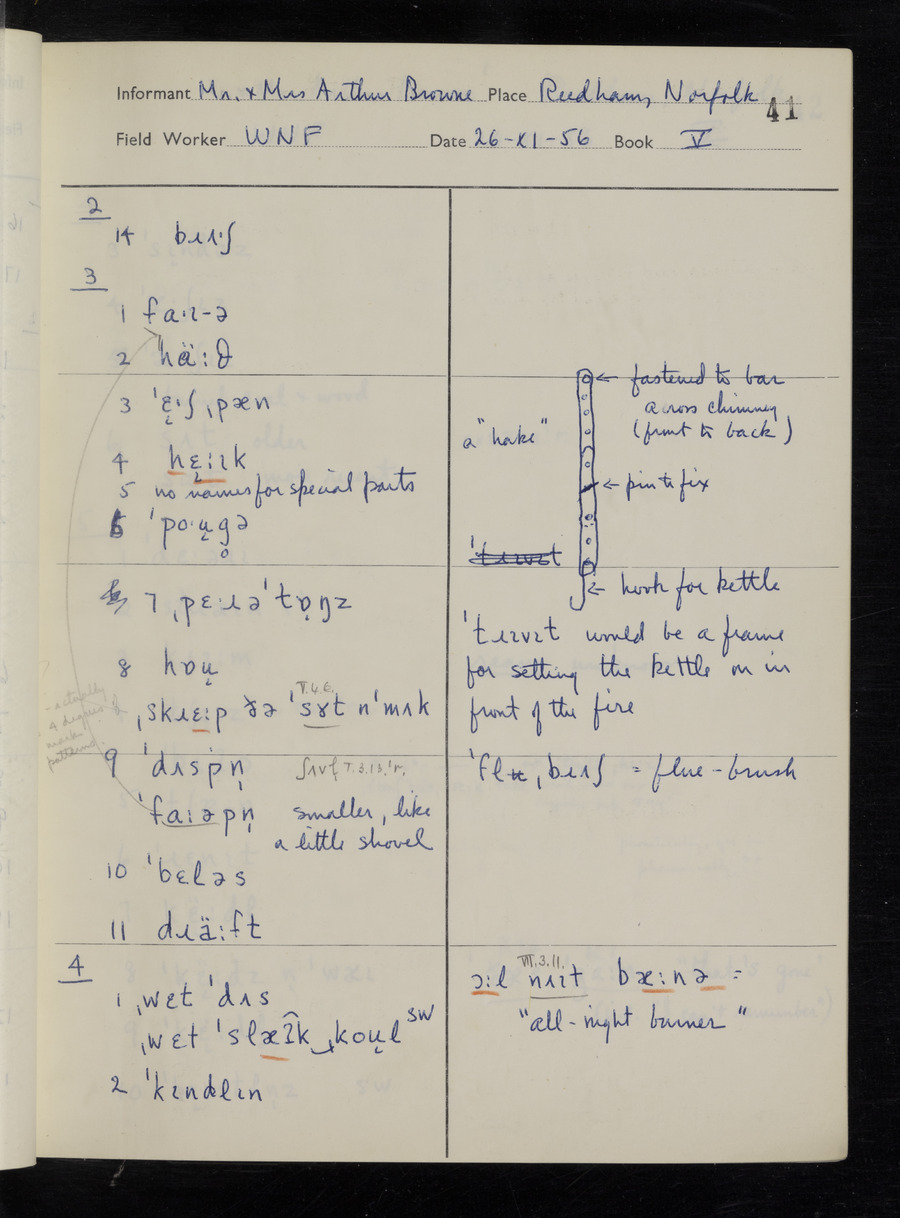 Informant Mr. & Mrs Arthur Browne Place Reedham, Norfolk
41
Field Worker WNF Date 26-XI-56 Book V
2
14 bɹʌ·ʃ
3
1 fa·ɪ-ə
2 hä:θ
3 ˈɛ̨·ʃˌpæn
4 hɛ̨:ɪk
5 no names for special parts
6 ˈpo·u̜g̥ə
7 ˌpɛ·ɹəˈtɒ̜ŋz
8 hɒu̜
ˌskɹɛ:p ðə ˈsɤt nˈmʌk
V.4.6.
9 ˈdʌspn̩ ʃʌvl V.3.13.
ˈfa:əpn̩ smaller, like
a little shovel
10 ˈbɛləs
11 dɹä:ft
4
1 ˌwɛt ˈdʌs
ˌwɛt ˈslæɪ̂k‿ˌkou̜l SW
2 ˈkɪndlɪn
- actually
a degree of
mark
patterns.
a "hake"
← fastened to bar
across chimney
(front to back)
← pin to fix
ˈtɹɪvɪt
← hook for kettle
ˈtɹɪvɪt would be a frame
for setting the kettle on in
front of the fire
ˈflʉˌbɹʌʃ = flue-brush
VII.3.11.
ɔ:l nʌɪt bæ:nə =
"all-night burner"